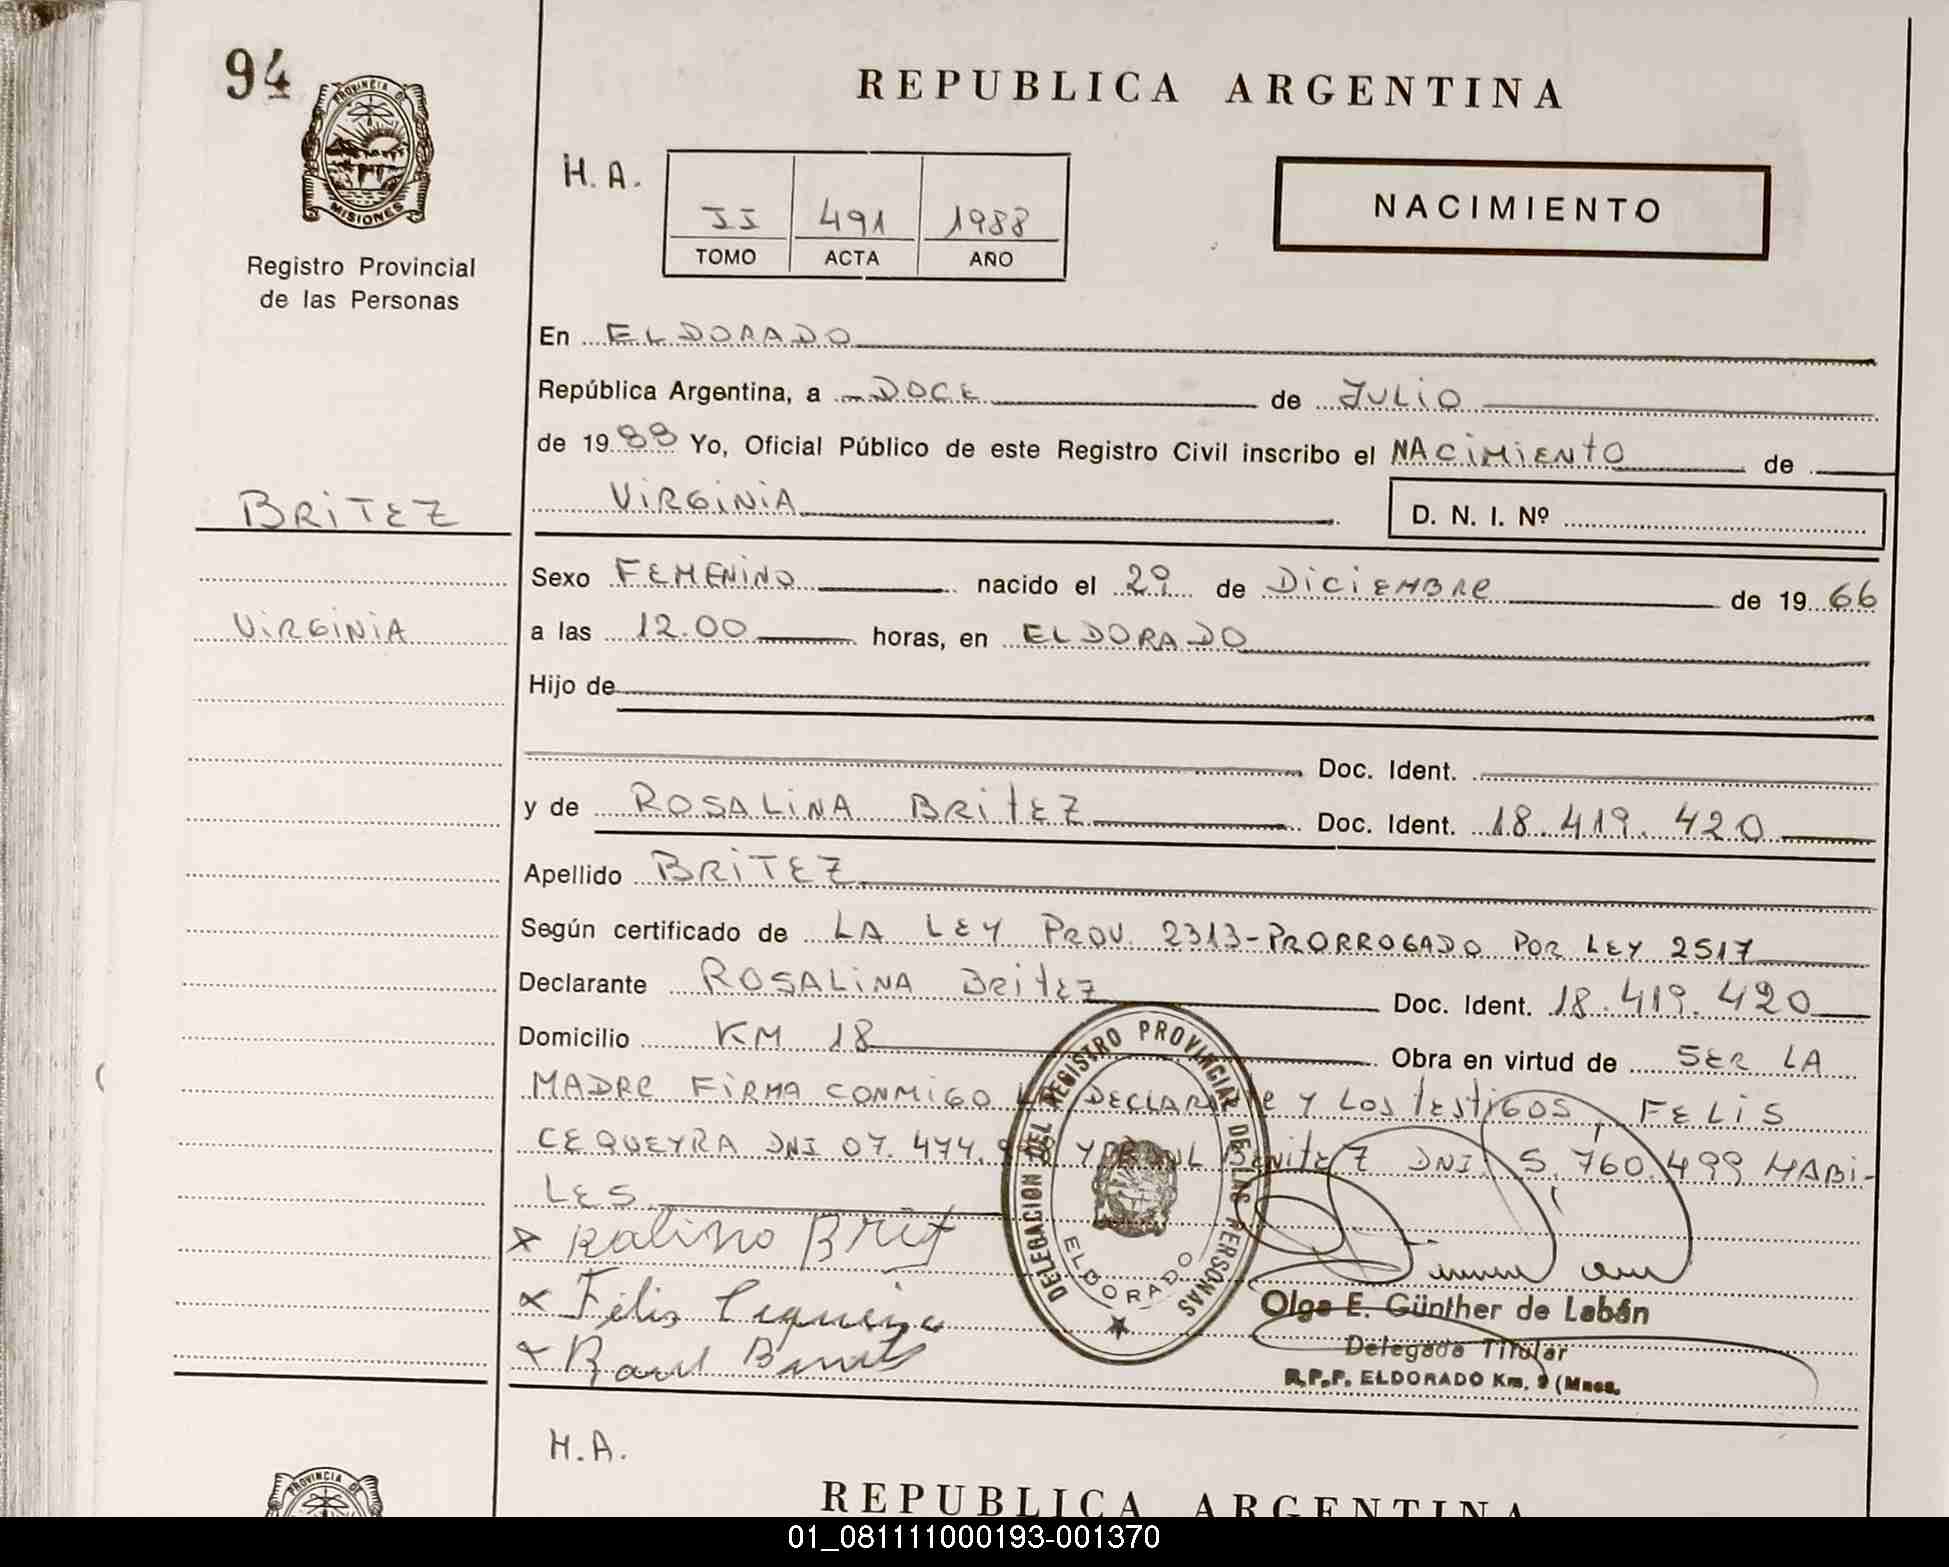 94
PROVINCIA DE
MISIONES
Registro Provincial
de las Personas
REPUBLICA ARGENTINA
H. A.
II 491 1988
TOMO ACTA AÑO
NACIMIENTO
En ELDORADO
República Argentina, a DOCE de JULIO
de 19 88 Yo, Oficial Público de este Registro Civil inscribo el NACIMIENTO de
BRITEZ
VIRGINIA
D. N. I. Nº
Sexo FEMENINO nacido el 29 de DICIEMBRE de 19 66
VIRGINIA
a las 12.00 horas, en ELDORADO
Hijo de
Doc. Ident.
y de ROSALINA BRITEZ Doc. Ident. 18.419.420
Apellido BRITEZ
Según certificado de LA LEY PROV. 2313-PRORROGADO POR LEY 2517
Declarante ROSALINA BRITEZ Doc. Ident. 18.419.420
Domicilio KM 18 Obra en virtud de SER LA
MADRE FIRMA CONMIGO LA DECLARANTE Y LOS TESTIGOS FELIS
CEQUEYRA DNI 07.474. Y RAUL BENITEZ DNI 5.760.499 HABI-
LES
DELEGACION DEL REGISTRO PROVINCIAL DE LAS PERSONAS
ELDORADO
x Ralino Brit
x Felis Cequeira
x Raul Benitez
Olga E. Günther de Labán
Delegada Titular
R.P.P. ELDORADO Km. 9 (Mnes.
H.A.
PROVINCIA DE
REPUBLICA ARGENTINA
01_081111000193-001370